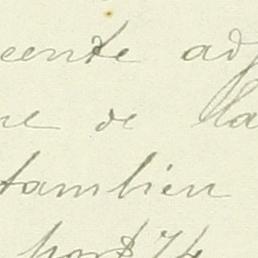 eente ad
ne de la
tambien
por $ 74